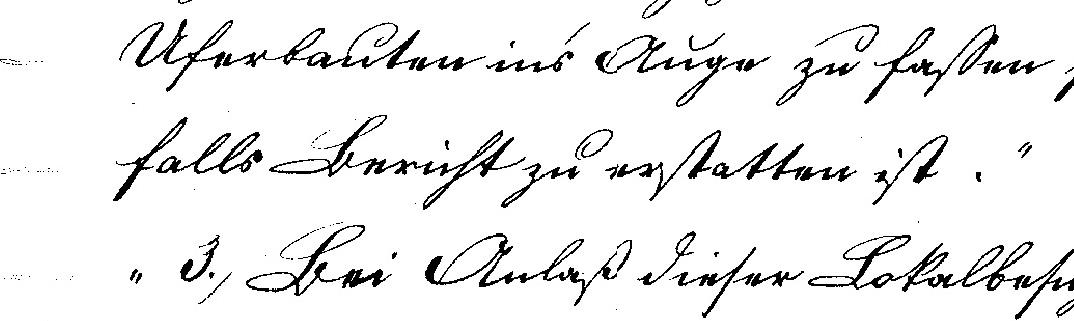 Uferbauten in's Auge zu fassen
falls Bericht zu erstatten ist."
„ 3., Bei Anlaß dieser Lokalbesi